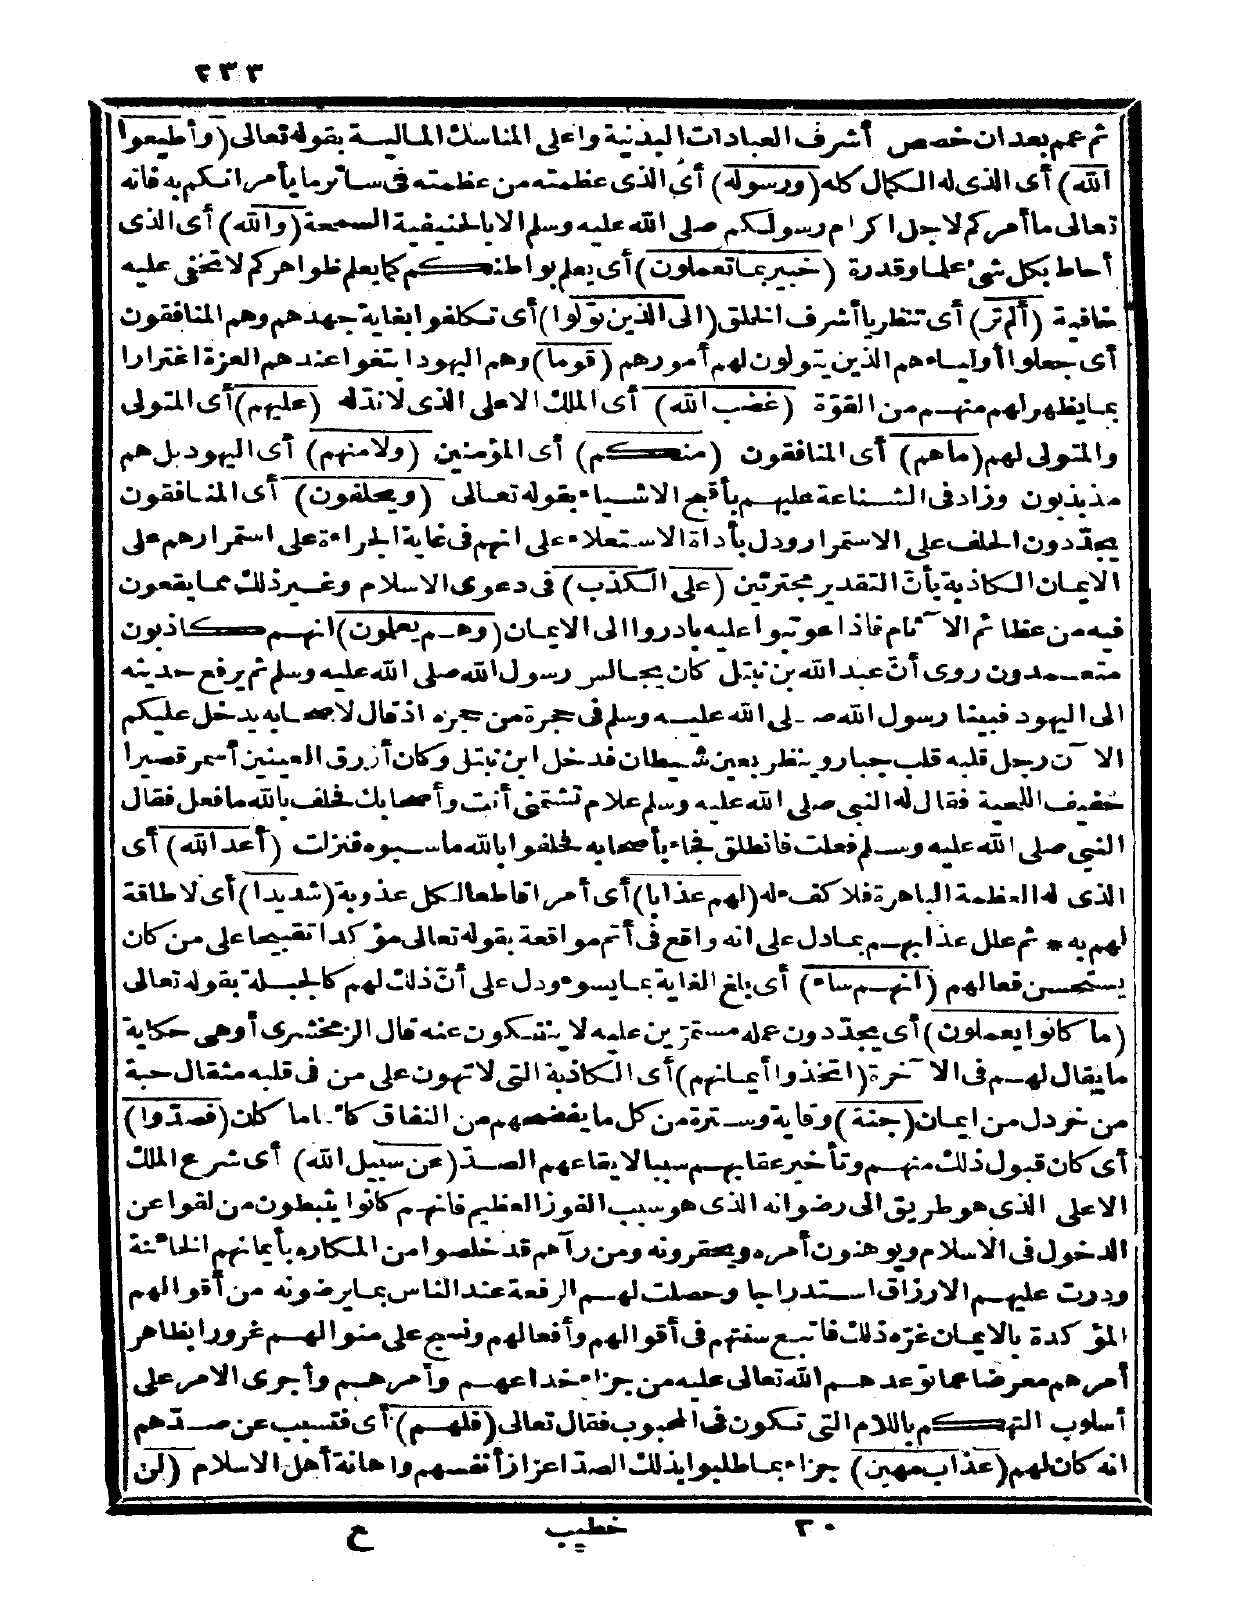 ٢٣٣
ثم عمم بعد ان خصص أشرف العبادات البدنية واعلى المناسك المالية بقوله تعالى (وأطيعوا
الله) أى الذى له الكمال كله (ورسوله) أى الذى عظمته من عظمته فى سائر ما يأمرانكم به فانه
تعالى ما أمركم لاجل اكرام رسولكم صلى الله عليه وسلم الا بالحنيفية السمحة (والله) أى الذى
أحاط بكل شئ علما وقدرة (خبير بما تعملون) أى يعلم بواطنكم كما يعلم ظواهركم لا تخفى عليه
خافية (ألم تر) أى تنظر يا أشرف الخلق (الى الذين تولوا) أى تكلفوا بغاية جهدهم وهم المنافقون
أى جعلوا أولياءهم الذين يتولون لهم أمورهم (قوما) وهم اليهود ابتغوا عندهم العزة اغترارا
بما يظهر لهم منهم من القوّة (غضب الله) أى الملك الاعلى الذى لا ندّله (عليهم) أى المتولى
والمتولى لهم (ما هم) أى المنافقون (منكم) أى المؤمنين (ولا منهم) أى اليهود بل هم
مذبذبون وزاد فى الشناعة عليهم بأقبح الاشياء بقوله تعالى (ويحلفون) أى المنافقون
يجدّدون الحلف على الاستمرار ودل بأداة الاستعلاء على انهم فى غاية الجراءة على استمرارهم على
الايمان الكاذبة بأنّ التقدير مجترئين (على الكذب) فى دعوى الاسلام وغير ذلك مما يقعون
فيه من عظائم الآثام فاذا عوتبوا عليه بادروا الى الايمان (وهم يعلمون) انهم كاذبون
متعمدون روى أنّ عبد الله بن نبتل كان يجالس رسول الله صلى الله عليه وسلم ثم يرفع حديثه
الى اليهود فبينا رسول الله صلى الله عليه وسلم فى حجرة من حجره اذ قال لاصحابه يدخل عليكم
الآن رجل قلبه قلب جبار وينظر بعين شيطان فدخل ابن نبتل وكان أزرق العينين أسمر قصيرا
خفيف اللحية فقال له النبى صلى الله عليه وسلم علام تشتمنى أنت وأصحابك فحلف بالله ما فعل فقال
النبى صلى الله عليه وسلم فعلت فانطلق فجاء بأصحابه فحلفوا بالله ما سبوه فنزلت (أعد الله) أى
الذى له العظمة الباهرة فلا كفء له (لهم عذابا) أى أمرا قاطعا لكل عذوبة (شديدا) أى لا طاقة
لهم به * ثم علل عذابهم بما دل على انه واقع فى أتم مواقعة بقوله تعالى مؤكدا تقبيحا على من كان
يستحسن فعالهم (انهم ساء) أى بلغ الغاية بما يسوء ودل على أنّ ذلك لهم كالجبلة بقوله تعالى
(ما كانوا يعملون) أى يجدّدون عمله مستمرّين عليه لا ينتكون عنه قال الزمخشرى أو هى حكاية
ما يقال لهم فى الآخرة (اتخذوا أيمانهم) أى الكاذبة التى لا تهون على من فى قلبه مثقال حبة
من خردل من ايمان (جنة) وقاية وسترة من كل ما يفضحهم من النفاق كائنا ما كان (فصدّوا)
أى كان قبول ذلك منهم وتأخير عقابهم سببا لايقاعهم الصدّ (عن سبيل الله) أى شرع الملك
الاعلى الذى هو طريق الى رضوانه الذى هو سبب الفوز العظيم فانهم كانوا يثبطون من لقوا عن
الدخول فى الاسلام ويوهنون أمره ويحقرونه ومن رآهم قد خلصوا من المكاره بأيمانهم الخائنة
ودرت عليهم الارزاق استدراجا وحصلت لهم الرفعة عند الناس بما يرضونه من أقوالهم
المؤكدة بالايمان غرّه ذلك فاتبع سنتهم فى أقوالهم وأفعالهم ونسج على منوالهم غرورا بظاهر
أمرهم معرضا عما توعدهم الله تعالى عليه من جزاء خداعهم وأمرهم وأجرى الامر على
أسلوب التهكم باللام التى تكون فى المحبوب فقال تعالى (فلهم) أى فتسبب عن صدّهم
انه كان لهم (عذاب مهين) جزاء بما طلبوا بذلك الصدّ اعزاز أنفسهم واهانة أهل الاسلام (لن
٣٠ خطيب ع